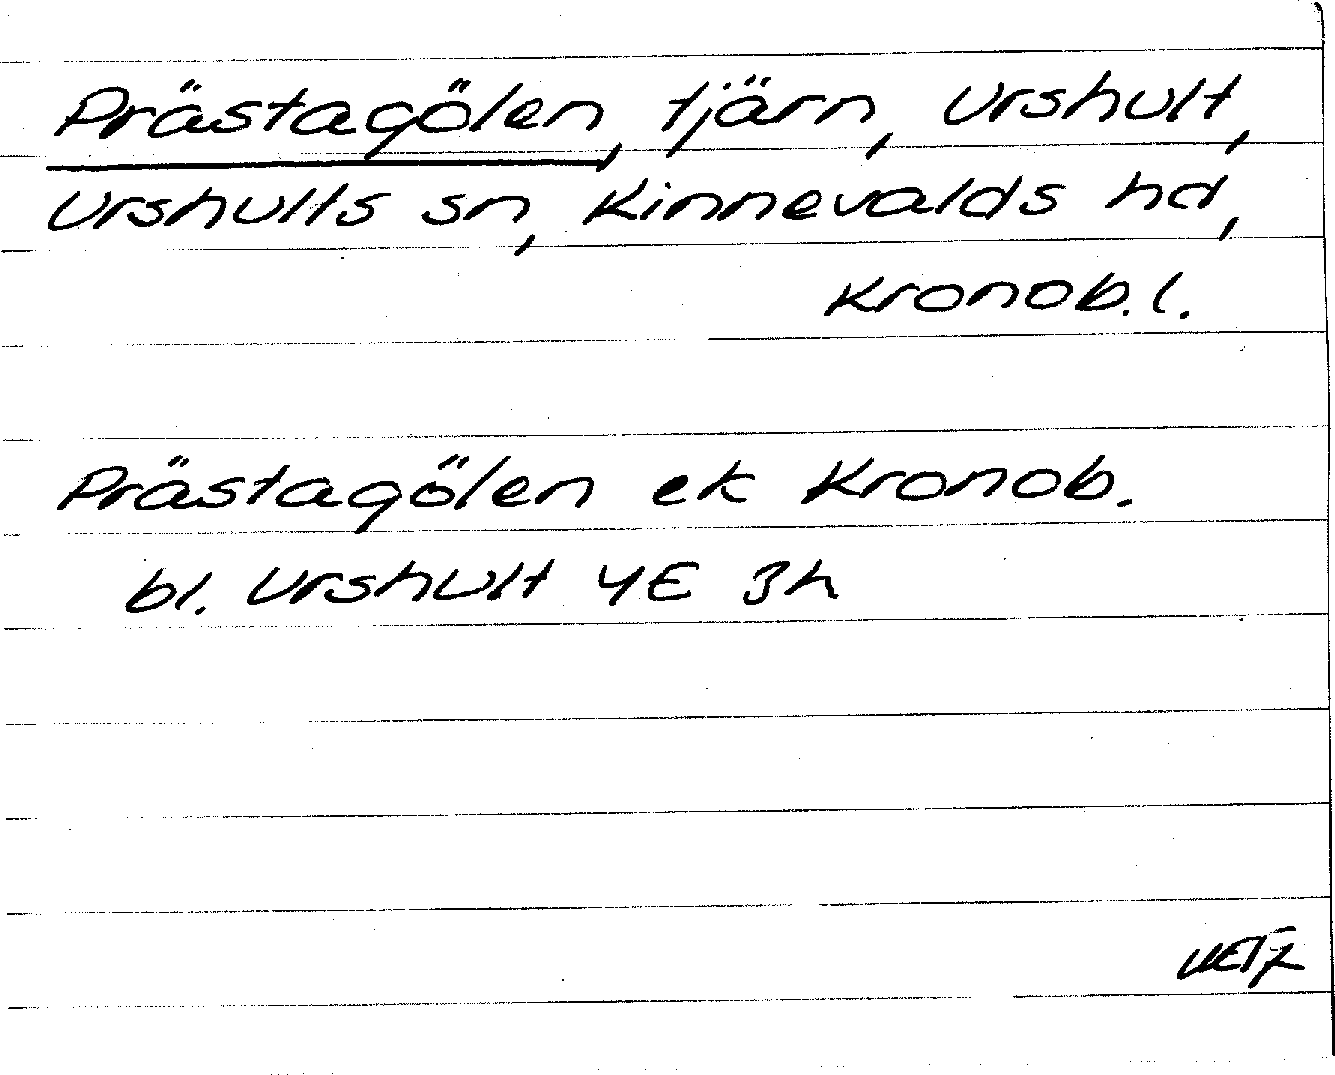 Prästagölen, tjärn, Urshult,
Urshults sn, Kinnevalds hd,
Kronob. l.
Prästagölen ek Kronob.
bl. Urshult 4E 3h